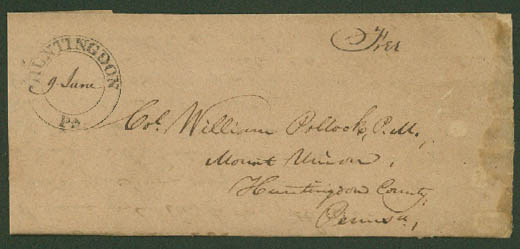 HUNTINGDON
9 June
PA
Free
Col. William Pollock, P.M.,
Mount Union,
Huntingdon County,
Penna,